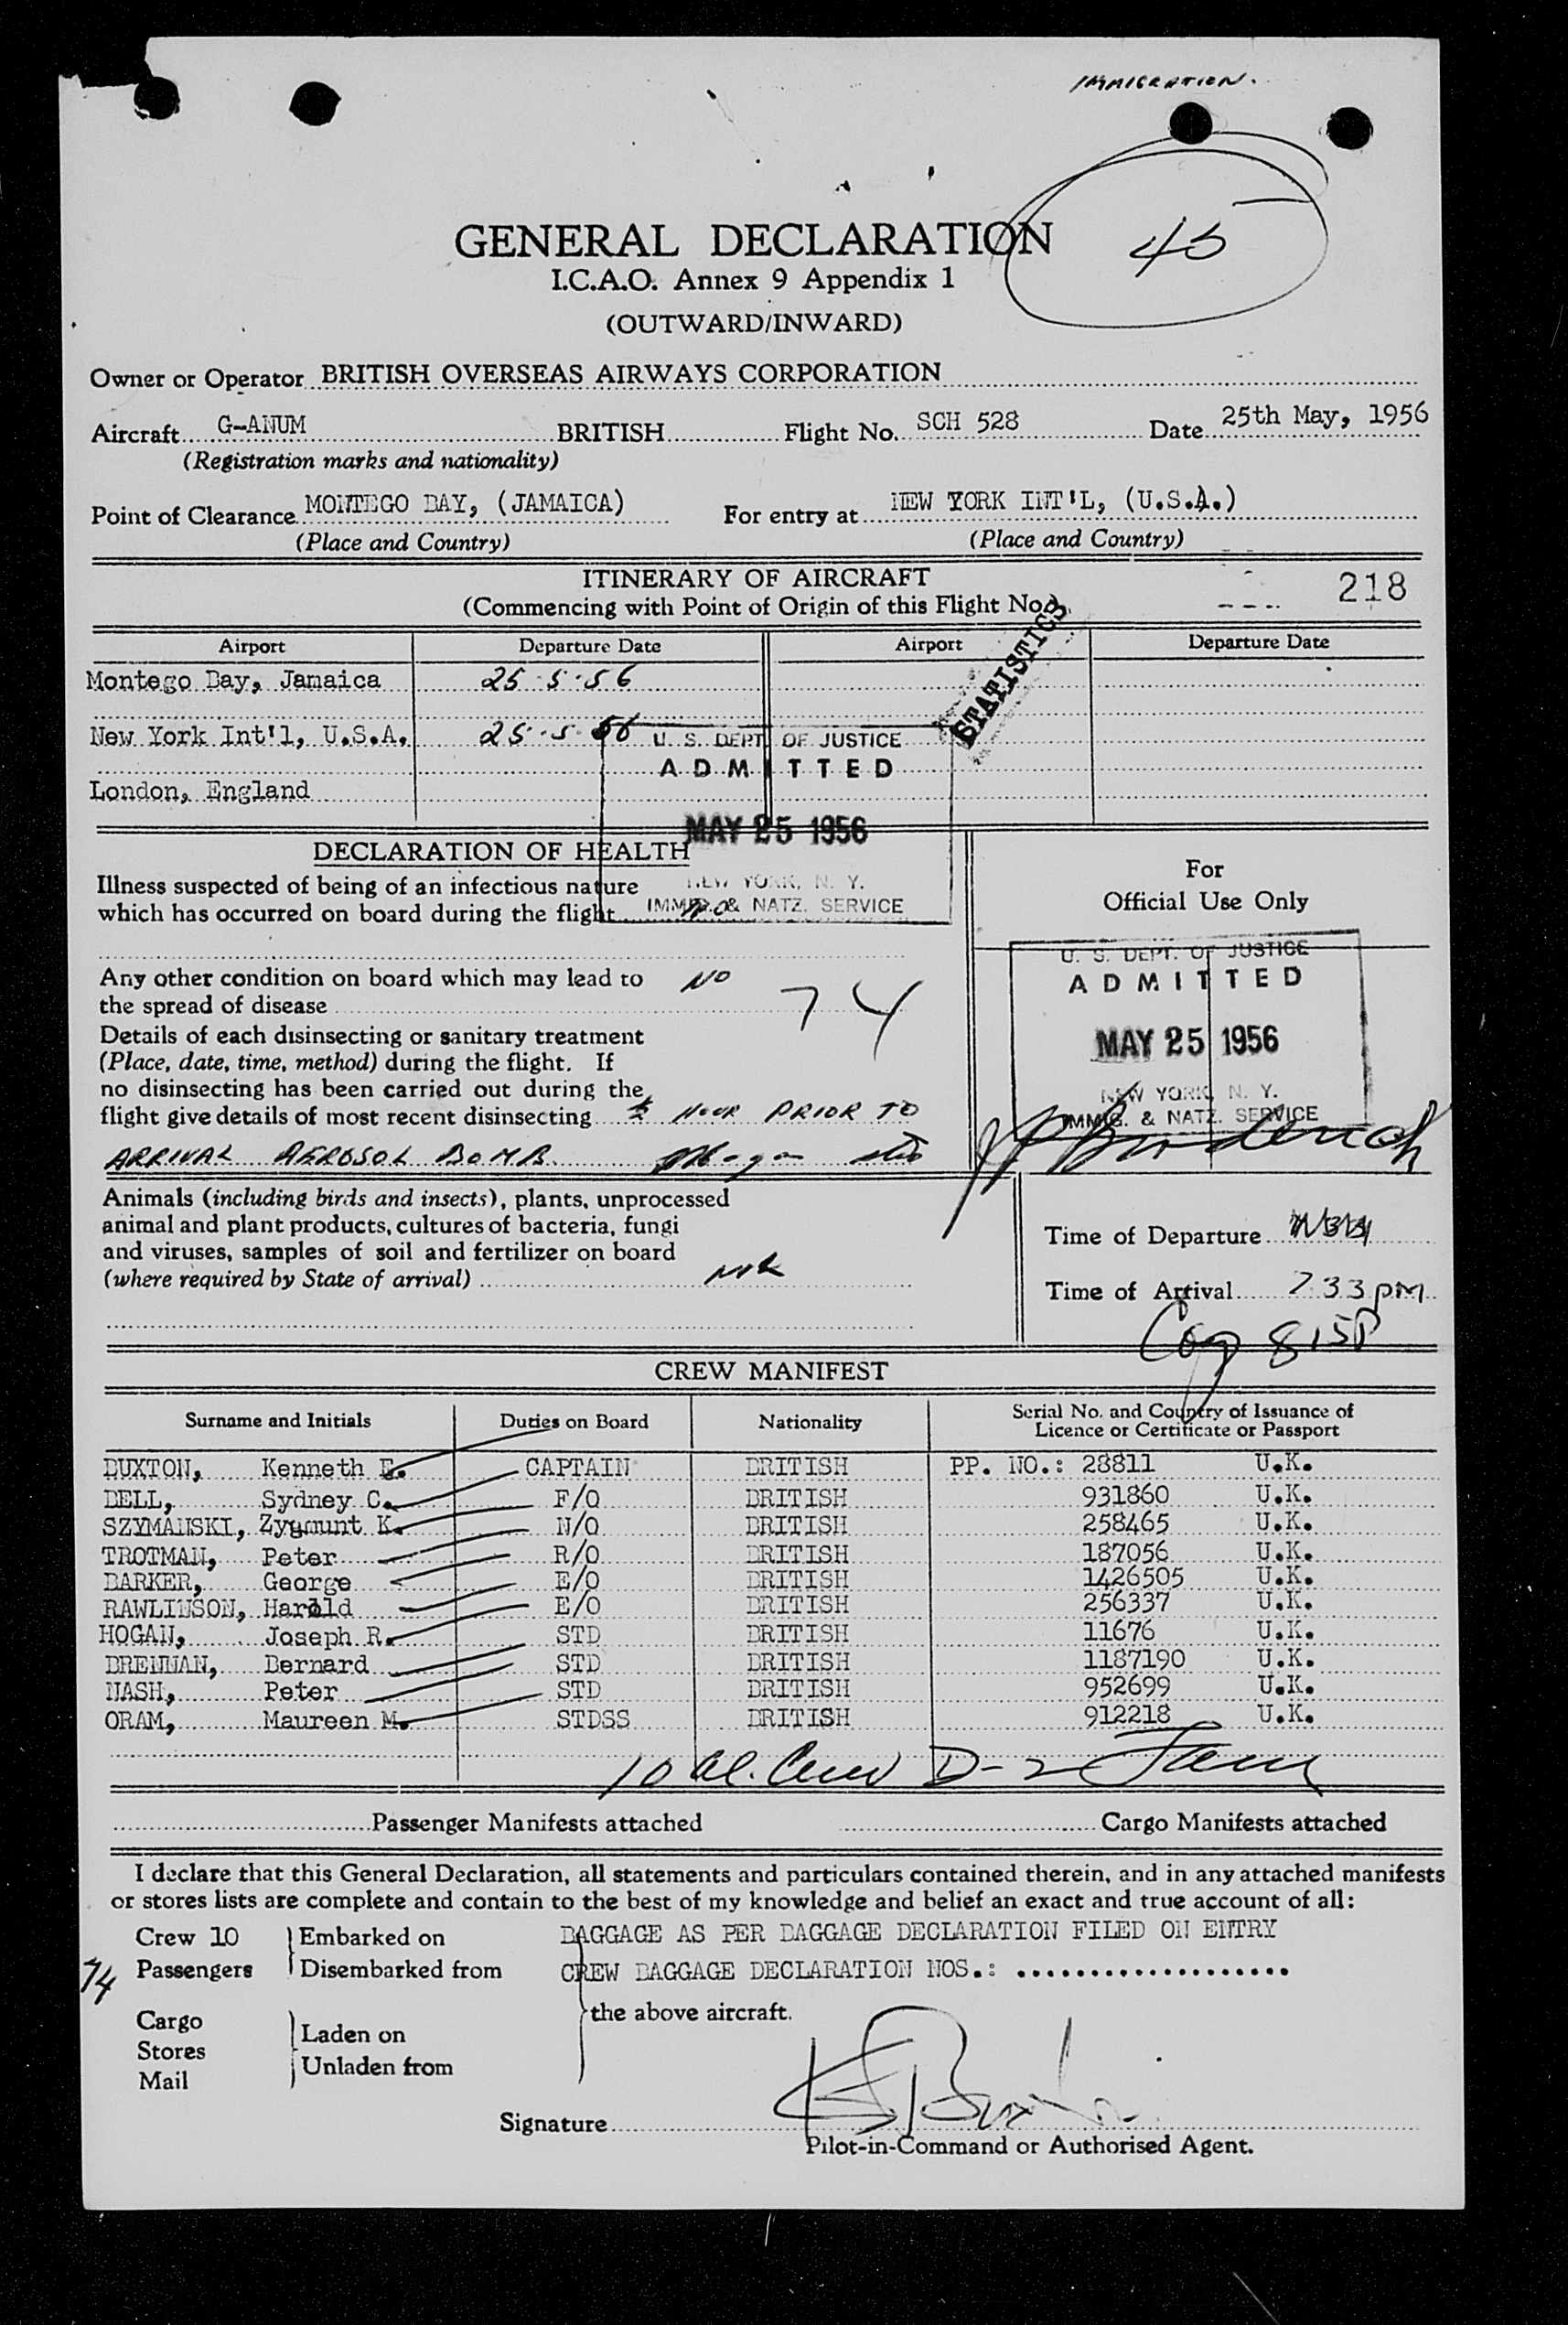 IMMIGRATION.
45
GENERAL DECLARATION
I.C.A.O. Annex 9 Appendix 1
(OUTWARD/INWARD)
Owner or Operator BRITISH OVERSEAS AIRWAYS CORPORATION
Aircraft G-ANUM BRITISH Flight No. SCH 528 Date 25th May, 1956
(Registration marks and nationality)
Point of Clearance MONTEGO BAY, (JAMAICA) For entry at NEW YORK INT'L, (U.S.A.)
(Place and Country) (Place and Country)
ITINERARY OF AIRCRAFT
(Commencing with Point of Origin of this Flight No.) 218
STATISTICS
Airport Departure Date Airport Departure Date
Montego Bay, Jamaica 25.5.56
New York Int'l, U.S.A. 25.5.56
London, England
U. S. DEPT. OF JUSTICE
ADMITTED
MAY 25 1956
NEW YORK, N. Y.
IMMIG. & NATZ. SERVICE
DECLARATION OF HEALTH
Illness suspected of being of an infectious nature
which has occurred on board during the flight NO
Any other condition on board which may lead to NO
the spread of disease 74
Details of each disinsecting or sanitary treatment
(Place, date, time, method) during the flight. If
no disinsecting has been carried out during the
flight give details of most recent disinsecting ½ HOUR PRIOR TO
ARRIVAL AEROSOL BOMB
For
Official Use Only
U. S. DEPT. OF JUSTICE
ADMITTED
MAY 25 1956
NEW YORK, N. Y.
IMMIG. & NATZ. SERVICE
Animals (including birds and insects), plants, unprocessed
animal and plant products, cultures of bacteria, fungi
and viruses, samples of soil and fertilizer on board
(where required by State of arrival) NIL
Time of Departure
Time of Arrival 7 33 pm
815P
CREW MANIFEST
Surname and Initials Duties on Board Nationality Serial No. and Country of Issuance of
Licence or Certificate or Passport
BUXTON, Kenneth E. CAPTAIN BRITISH PP. NO.: 28811 U.K.
BELL, Sydney C. F/O BRITISH 931860 U.K.
SZYMANSKI, Zygmunt K. N/O BRITISH 258465 U.K.
TROTMAN, Peter R/O BRITISH 187056 U.K.
BARKER, George E/O BRITISH 1426505 U.K.
RAWLINSON, Harold E/O BRITISH 256337 U.K.
HOGAN, Joseph R. STD BRITISH 11676 U.K.
BRENNAN, Bernard STD BRITISH 1187190 U.K.
NASH, Peter STD BRITISH 952699 U.K.
ORAM, Maureen M. STDSS BRITISH 912218 U.K.
10 al. Crew D-2
Passenger Manifests attached Cargo Manifests attached
I declare that this General Declaration, all statements and particulars contained therein, and in any attached manifests
or stores lists are complete and contain to the best of my knowledge and belief an exact and true account of all:
Crew 10 Embarked on BAGGAGE AS PER BAGGAGE DECLARATION FILED ON ENTRY
74 Passengers Disembarked from CREW BAGGAGE DECLARATION NOS.: ...................
the above aircraft.
Cargo
Stores
Mail
Laden on
Unladen from
Signature
Pilot-in-Command or Authorised Agent.